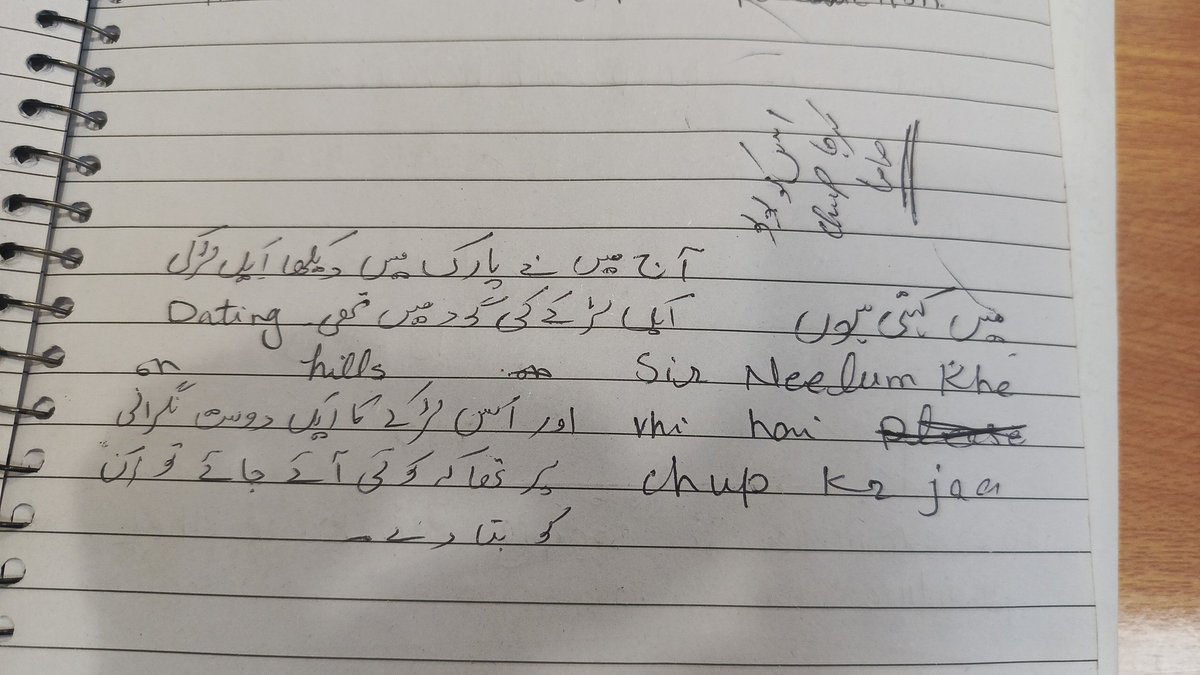 اس کو بولو
chup کر جا
ماما
آج میں نے پارک میں دیکھا ایک لڑکی
ایک لڑکے کی گود میں تھی۔ Dating
on hills
اور اس لڑکے کا ایک دوست نگرانی
پر تھا کہ کوئی آئے جائے تو ان
کو بتا دے۔
میں کہتی ہوں
Sir Neelum Khe
rhi hai
chup kr jaa